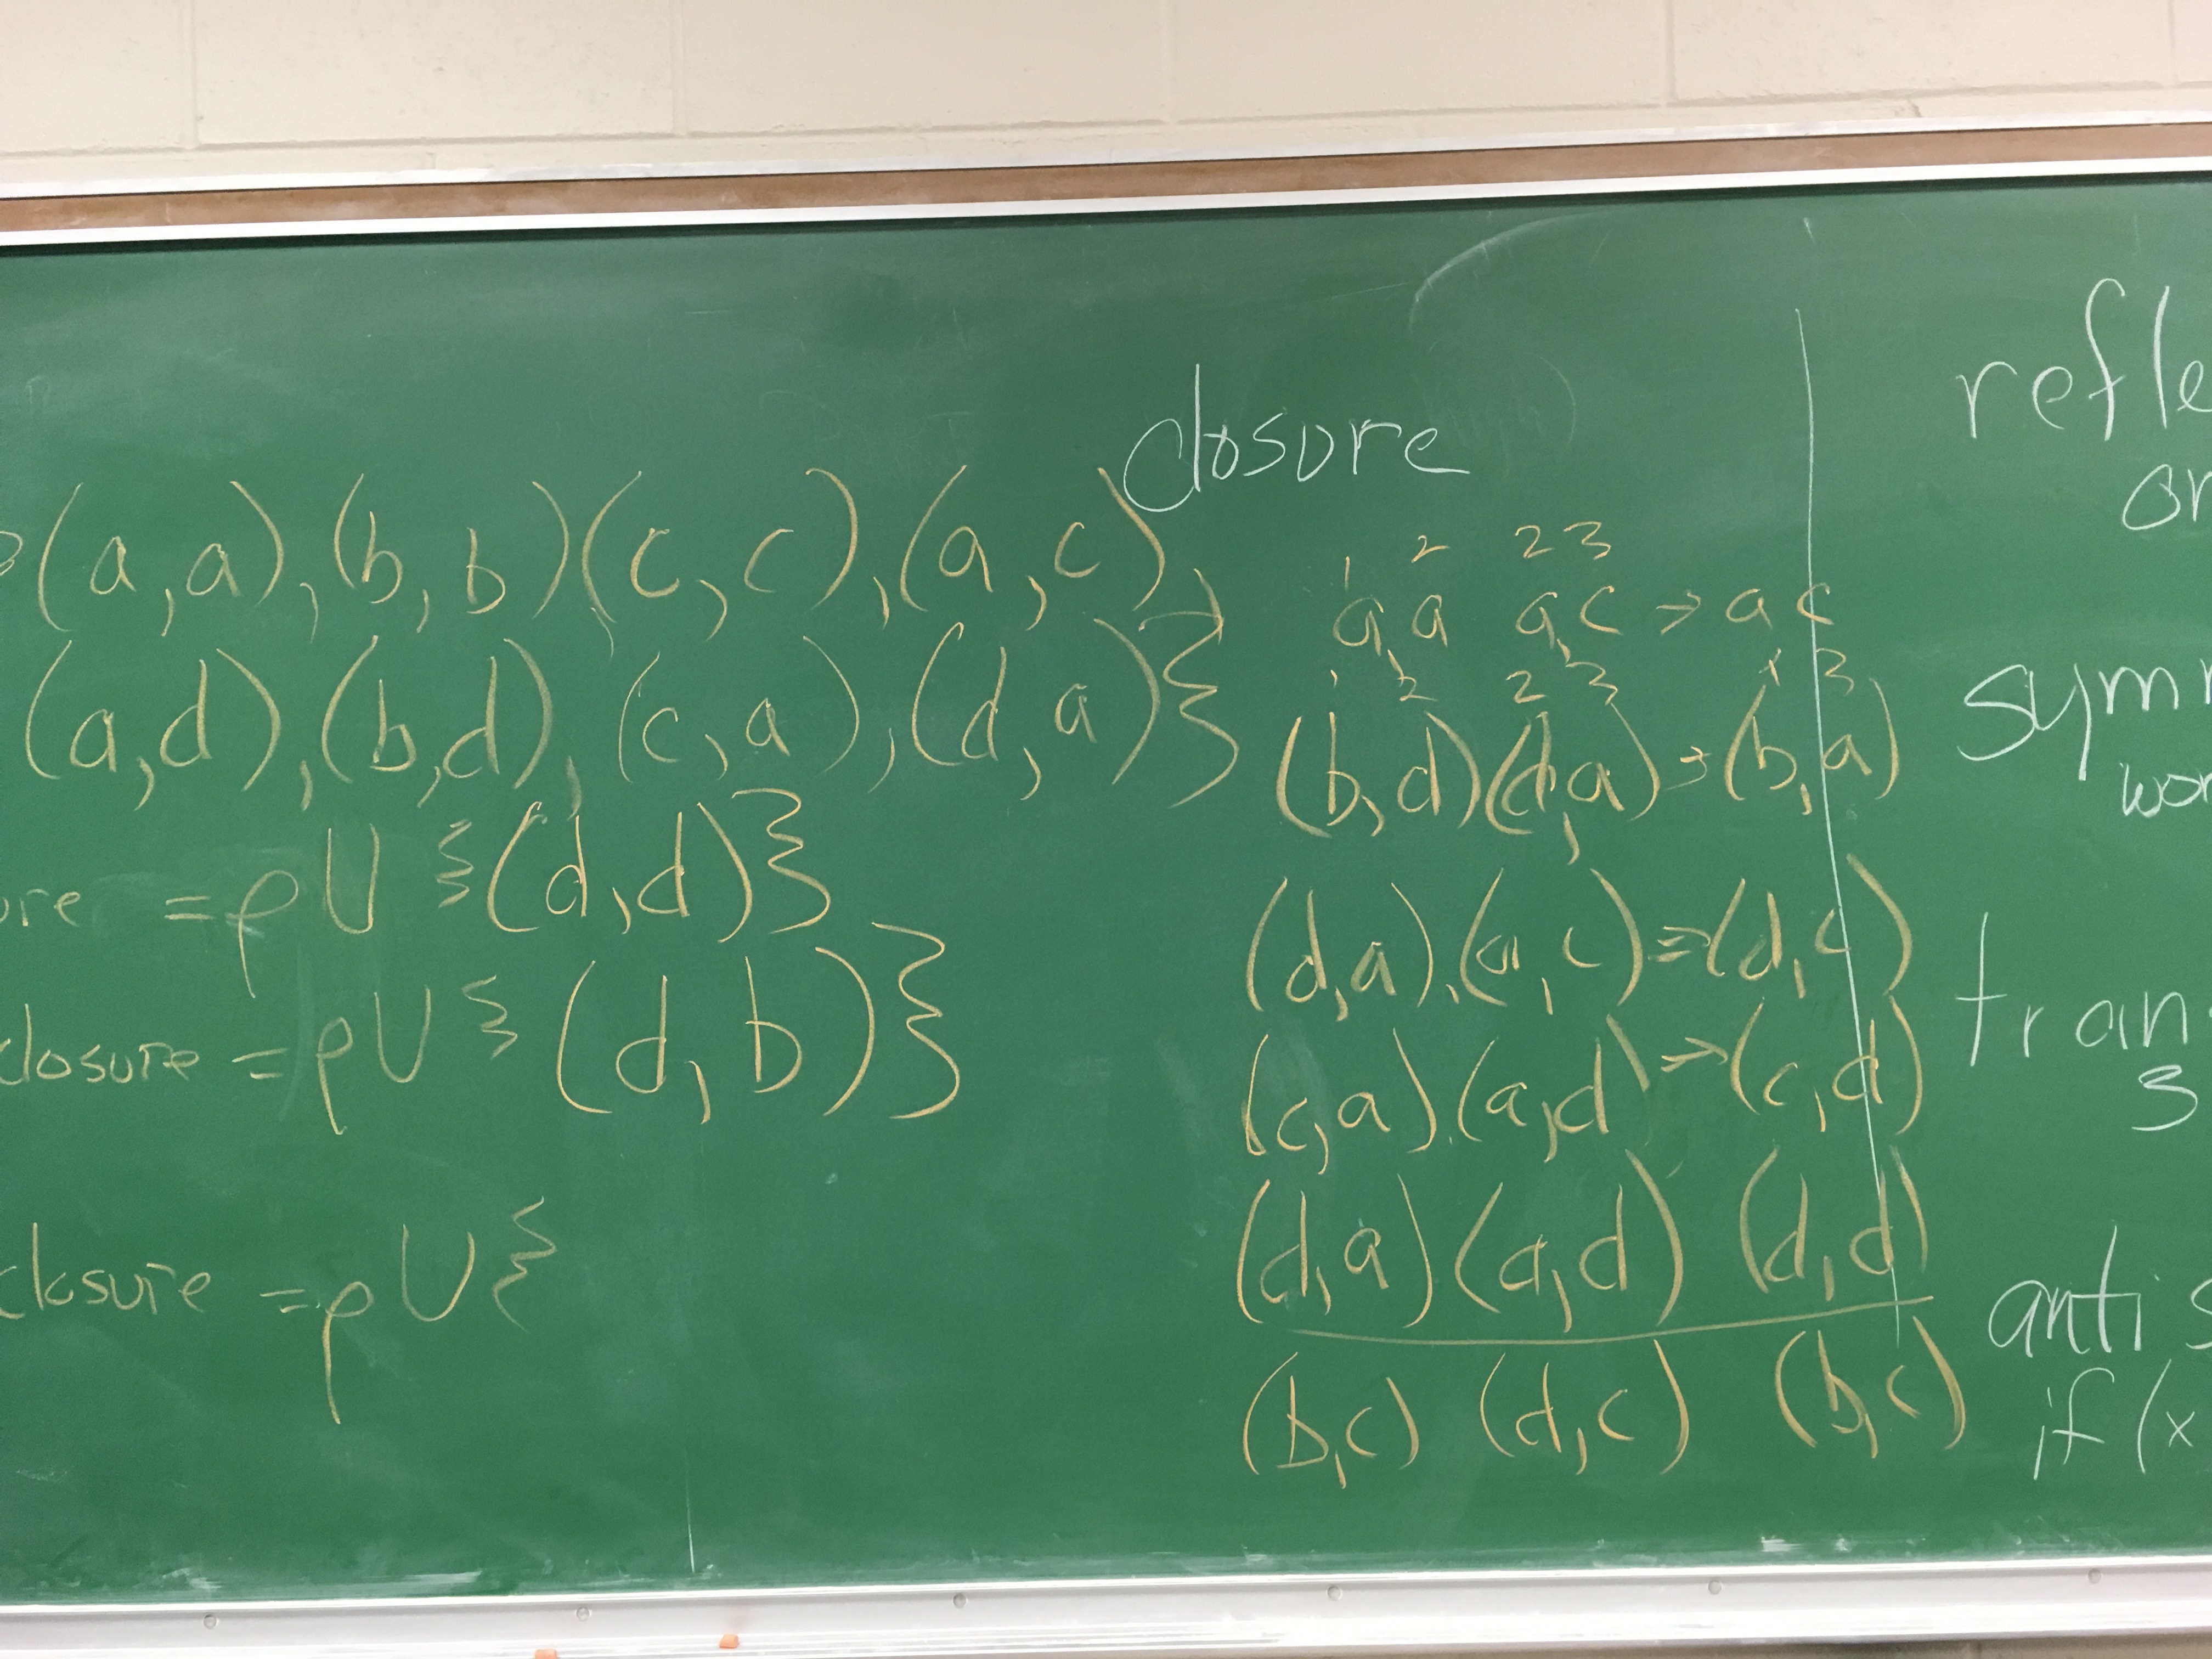 closure
(a,a),(b,b)(c,c),(a,c),
(a,d),(b,d),(c,a),(d,a)}
ure = ρ U {(d,d)}
closure = ρ U {(d,b)}
closure = ρ U {
1 2 2 3
a,a a,c → a c
1 2 2 3 1 3
(b,d)(d,a) → (b,a)
(d,a),(a,c) ⇒ (d,c)
(c,a),(a,d) → (c,d)
(d,a)(a,d) (d,d)
(b,c) (d,c) (b,c)
refle
or
symm
wor
tran
3
anti s
if (x